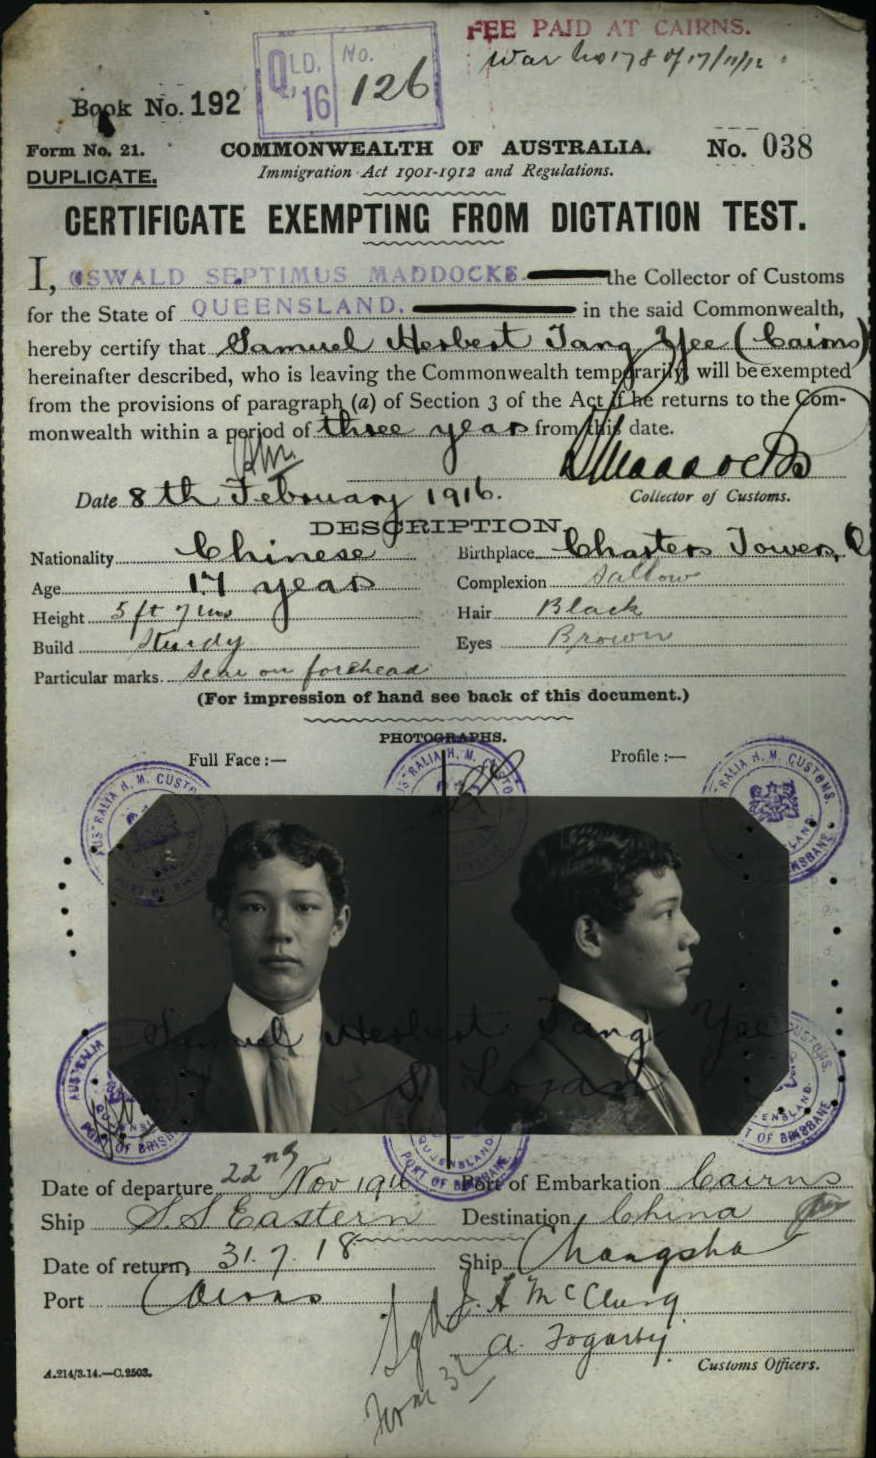 FEE PAID AT CAIRNS.
War No 178 of 17/11/16
QLD. No.
16 126
Book No. 192
Form No. 21. COMMONWEALTH OF AUSTRALIA. No. 038
DUPLICATE. Immigration Act 1901-1912 and Regulations.
CERTIFICATE EXEMPTING FROM DICTATION TEST.
I, OSWALD SEPTIMUS MADDOCKS the Collector of Customs
for the State of QUEENSLAND. in the said Commonwealth,
hereby certify that Samuel Herbert Tang Yee (Cairns)
hereinafter described, who is leaving the Commonwealth temporarily will be exempted
from the provisions of paragraph (a) of Section 3 of the Act if he returns to the Com-
monwealth within a period of three years from this date.
Date 8th February 1916. Collector of Customs.
DESCRIPTION.
Nationality Chinese Birthplace Charters Towers, Q
Age 17 years Complexion Sallow
Height 5 ft 7 ins Hair Black
Build Sturdy Eyes Brown
Particular marks. Scar on forehead
(For impression of hand see back of this document.)
PHOTOGRAPHS.
Full Face:— Profile:—
AUSTRALIA H. M. CUSTOMS. QUEENSLAND PORT OF BRISBANE
Samuel Herbert Tang Yee
Date of departure 22nd Nov 1916 Port of Embarkation Cairns
Ship S.S Eastern Destination China
Date of return 31.7.18 Ship Changsha
Port Cairns
Sgd J. A McClung
A. Fogarty.
Form 32
Customs Officers.
A.214/3.14.—C.2503.